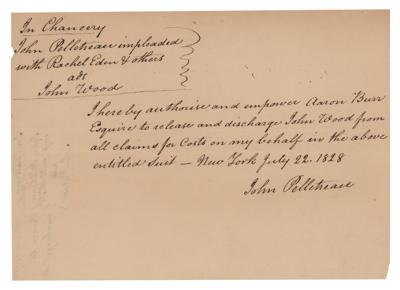 In Chancery
John Pelletreau impleaded
with Rachel Eden & others
ads
John Wood
I hereby authorise and empower Aaron Burr
Esquire to release and discharge John Wood from
all claims for Costs on my behalf in the above
entitled Suit — New York July 22. 1828
John Pelletreau